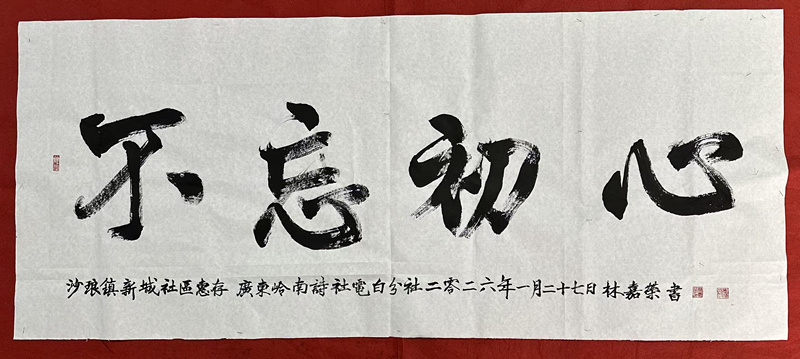 不忘初心
沙琅鎮新城社區惠存 廣東岭南詩社電白分社二零二六年一月二十七日 林嘉榮書